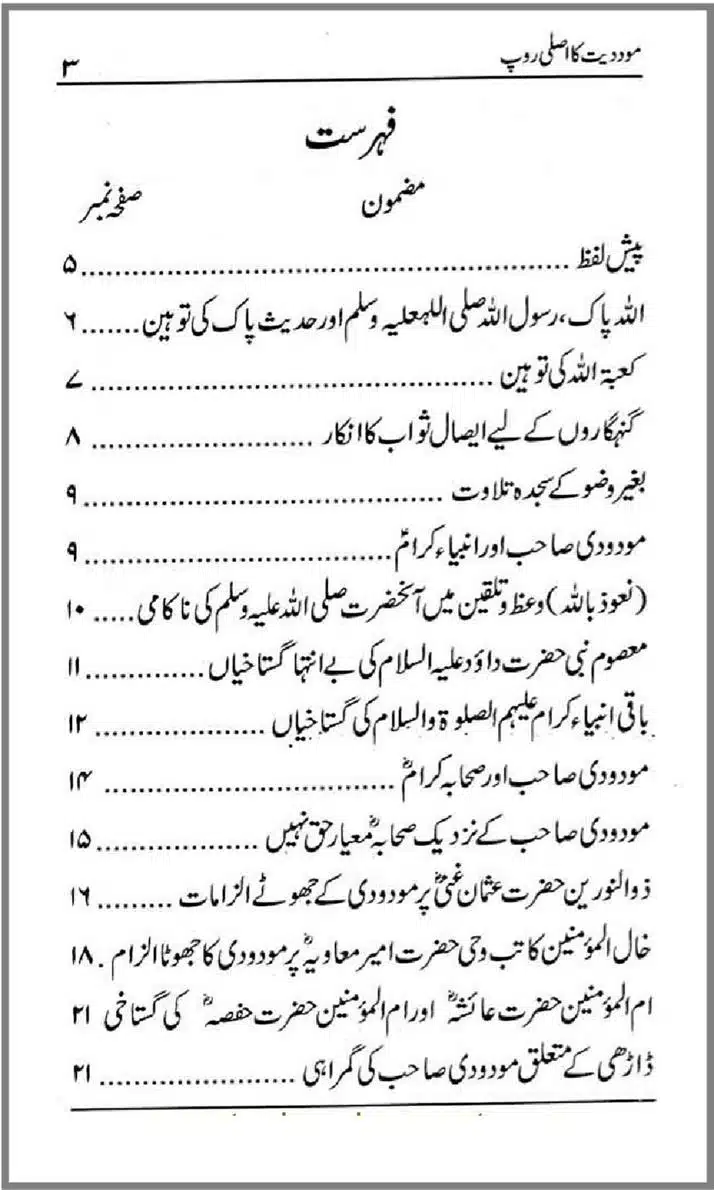 مودودیت کا اصلی روپ ۳
فہرست
مضمون صفحہ نمبر
پیش لفظ ................................................ ۵
اللہ پاک، رسول اللہ صلی اللہعلیہ وسلم اور حدیث پاک کی توہین ....... ۶
کعبۃ اللہ کی توہین ........................................ ۷
گنہگاروں کے لیے ایصال ثواب کا انکار ...................... ۸
بغیر وضو کے سجدہ تلاوت .................................... ۹
مودودی صاحب اور انبیاء کرامؑ ............................... ۹
(نعوذ باللہ) وعظ و تلقین میں آنحضرت صلی اللہ علیہ وسلم کی ناکامی ..... ۱۰
معصوم نبی حضرت داؤد علیہ السلام کی بے انتہا گستاخیاں .............. ۱۱
باقی انبیاء کرام علیہم الصلوۃ والسلام کی گستاخیاں .................... ۱۲
مودودی صاحب اور صحابہ کرامؓ .................................. ۱۴
مودودی صاحب کے نزدیک صحابہؓ معیار حق نہیں ................... ۱۵
ذوالنورین حضرت عثمان غنیؓ پر مودودی کے جھوٹے الزامات ......... ۱۶
خال المؤمنین کاتب وحی حضرت امیر معاویہؓ پر مودودی کا جھوٹا الزام . ۱۸
ام المؤمنین حضرت عائشہؓ اور ام المؤمنین حضرت حفصہؓ کی گستاخی ۲۱
ڈاڑھی کے متعلق مودودی صاحب کی گمراہی ....................... ۲۱